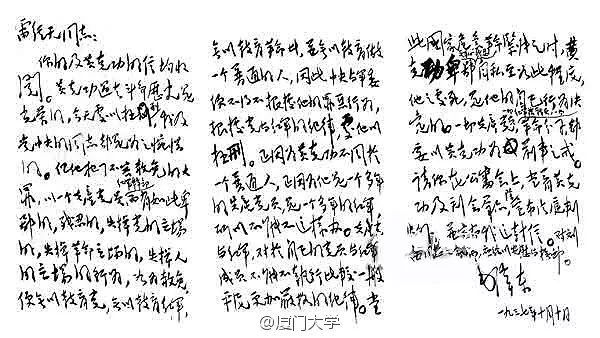 雷经天同志：
你的及黄克功的信均收
阅。黄克功过去斗争历史是
光荣的，今天处以极刑，我及
党中央的同志都是为之惋惜
的。但他犯了不容赦免的大
罪，以一个共产党员红军干部而有如此卑
鄙的，残忍的，失掉党的立场
的，失掉革命立场的，失掉人
的立场的行为，如为赦免，
便无以教育党，无以教育红军，
无以教育革命者，并无以教育做
一个普通的人。因此中央与军委
便不得不根据他的罪恶行为，
根据党与红军的纪律，处他以
极刑。正因为黄克功不同于
一个普通人，正因为他是一个多年
的共产党员，是一个多年的红军，
所以不能不这样办。共产党
与红军，对于自己的党员与红军
成员不能不执行比较一般
平民更加严格的纪律。当
此国家危急革命紧张之时，黄
克功卑鄙无耻残忍自私至如此程度，
他之处死，是他的自己行为决
定的。一切共产党员，一切红军指战员，一切革命分子，都
要以黄克功为前车之戒。
请你在公审会上，当着黄克
功及到会群众，除宣布法庭判
决外，并宣布我这封信。对刘
茜同志之家属，应给以安慰与抚恤。
毛泽东
一九三七年十月十日
@厦门大学